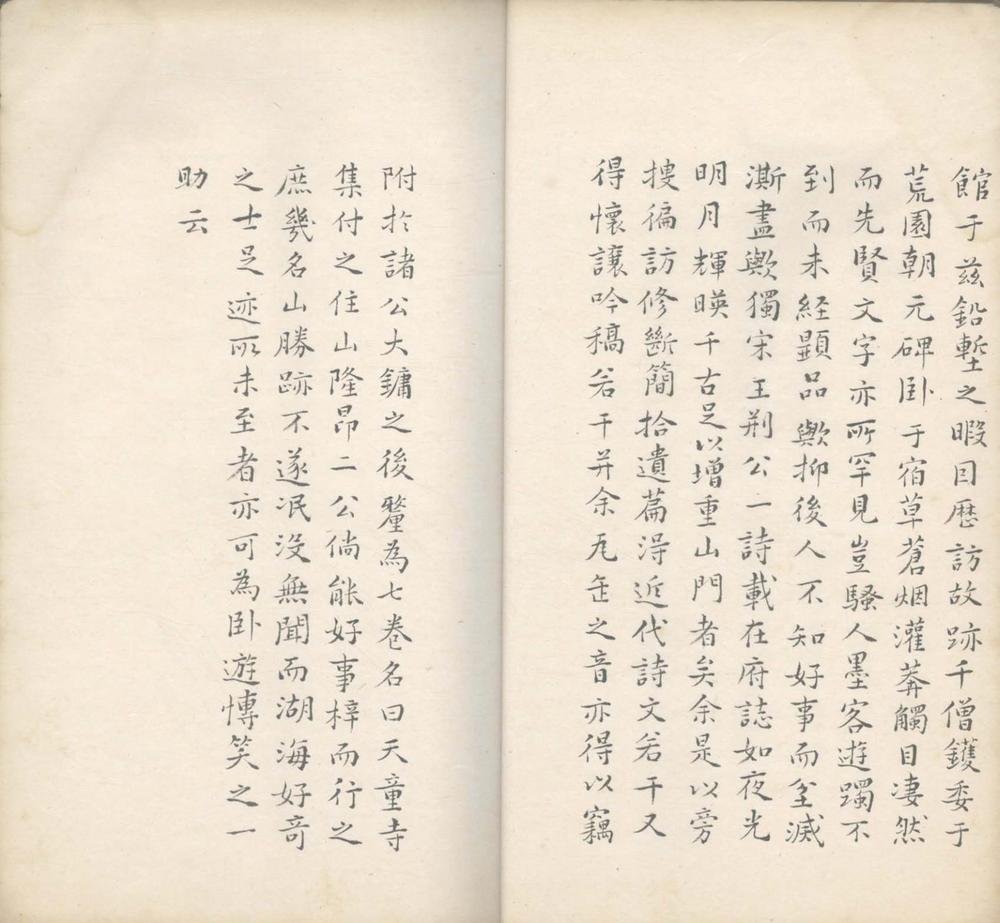 館于茲鉛槧之暇因歷訪故跡千僧鑊委于
荒園朝元碑卧于宿草蒼烟灌莽觸目凄然
而先賢文字亦所罕見豈騷人墨客遊躅不
到而未經顯品歟抑後人不知好事而至滅
澌盡歟獨宋王荆公一詩載在府誌如夜光
明月輝暎千古足以增重山門者矣余是以旁
搜徧訪修斷簡拾遺篇得近代詩文若干又
得懷讓吟稿若干并余瓦缶之音亦得以竊
附於諸公大鏞之後釐為七卷名曰天童寺
集付之住山隆昂二公倘能好事梓而行之
庶幾名山勝跡不遂泯没無聞而湖海好竒
之士足迹所未至者亦可為卧遊慱笑之一
助云